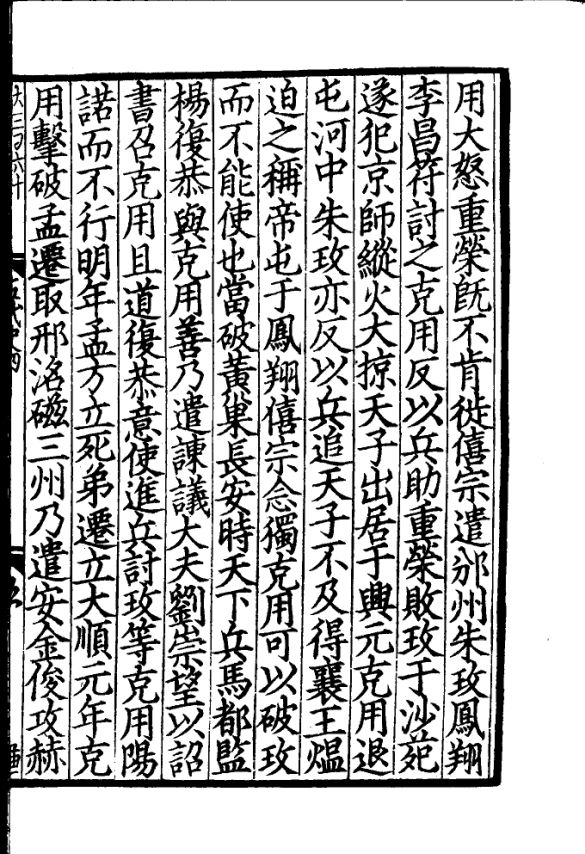 用大怒重榮旣不肯徙僖宗遣邠州朱玫鳳翔
李昌符討之克用反以兵助重榮敗玫于沙苑
遂犯京師縱火大掠天子出居于興元克用退
屯河中朱玫亦反以兵追天子不及得襄王熅
迫之稱帝屯于鳳翔僖宗念獨克用可以破玫
而不能使也當破黃巢長安時天下兵馬都監
楊復恭與克用善乃遣諫議大夫劉崇望以詔
書召克用且道復恭意使進兵討玫等克用陽
諾而不行明年孟方立死弟遷立大順元年克
用擊破孟遷取邢洺磁三州乃遣安金俊攻赫